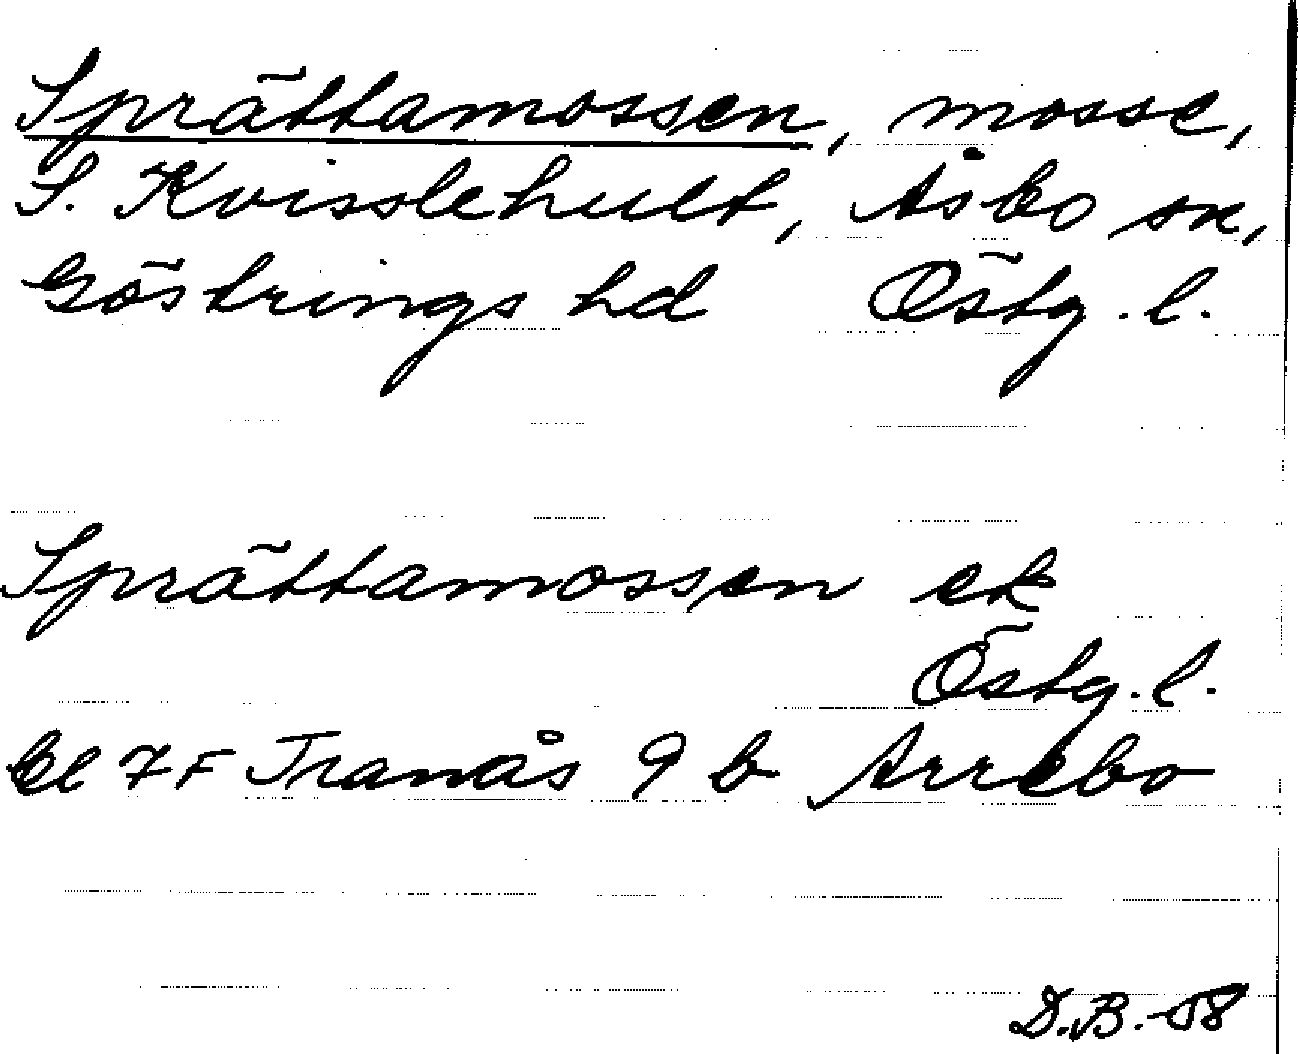 Sprättamossen, mosse,
S. Kvisslehult, Åsbo sn,
Göstrings hd Östg. l.
Sprättamossen ek
Östg. l.
Bl 7 F Tranås 9 b Arrebo
D.B.-58